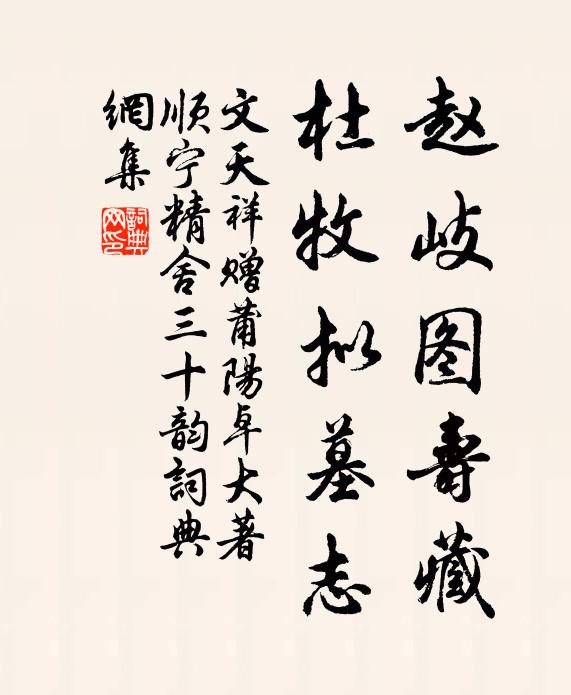 赵岐图壽藏
杜牧拟墓志
文天祥赠莆陽卓大著
顺宁精舍三十韵詞典
網集
詞典网印